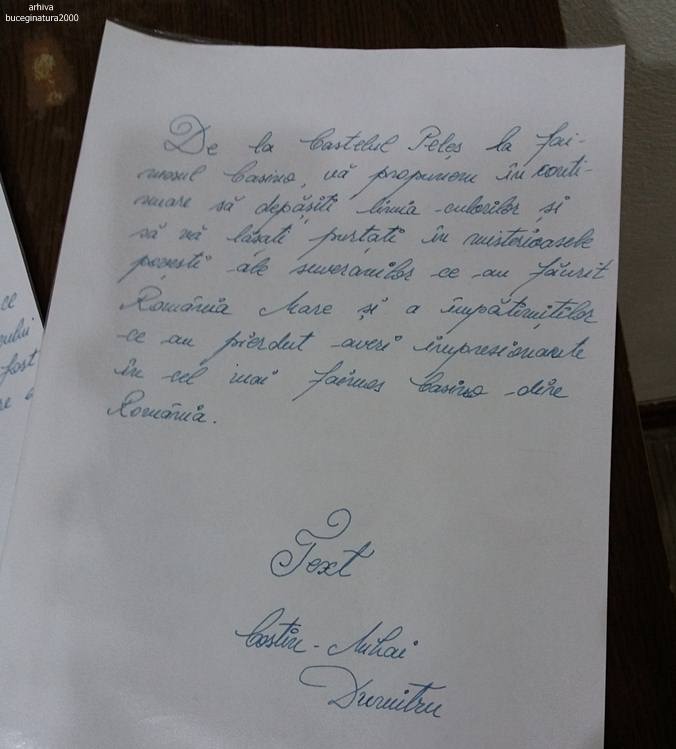 arhiva
buceginatura2000
De la Castelul Peleș la fai-
mosul Casino, vă propunem în conti-
nuare să depășiți limia culorilor și
să vă lăsați purtați în misterioasele
povești ale suveranilor ce au făurit
România Mare și a împătimiților
ce au pierdut averi impresionante
în cel mai faimos Casino din
România.
Text
Costin-Mihai
Dumitru
ce
ului
fost
re a